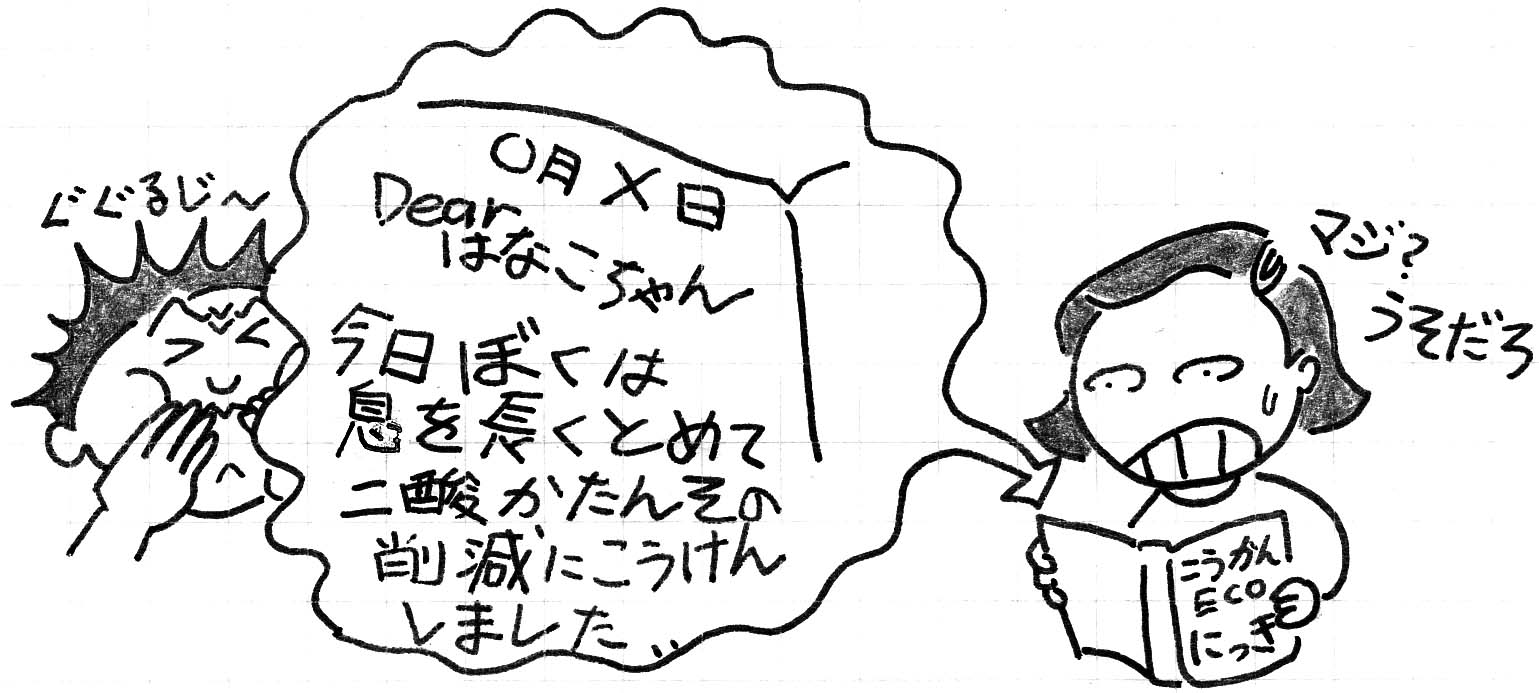 ぐぐるじ〜
〇月×日
Dear
はなこちゃん
今日ぼくは
息を長くとめて
二酸かたんその
削減にこうけん
しました..
マジ?
うそだろ
こうかん
ECO
にっき